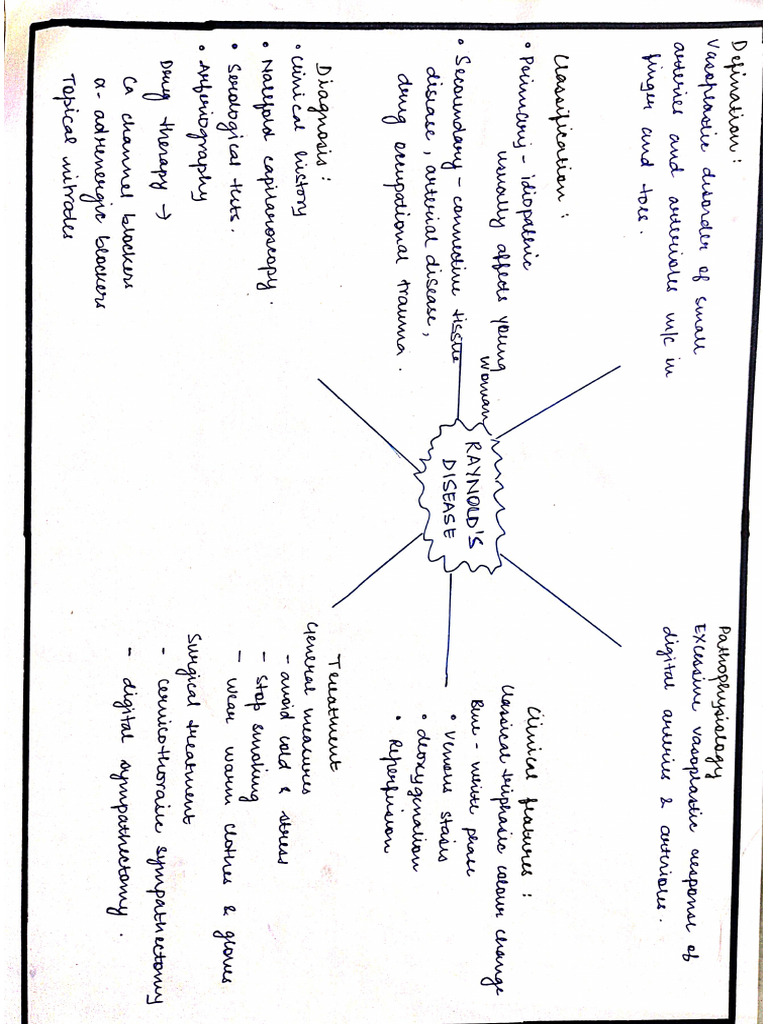 Defination :
Vasoplastic disorder of small
arteries and arterioles m/c in
finger and toes.
Classification :
• Primary - idiopathic
usually affects young
woman
• Secoundary - connective tissue
disease, arterial disease,
drug occupational trauma.
Diagnosis :
• Clinical history
• Nailfold capilaroscopy.
• Serological tests.
• Arteriography
Drug therapy →
Ca channel blockers
α- adrenergic blockers
Topical nitrates
RAYNOLD'S
DISEASE
Pathophysiology
Excessive vasoplastic response of
digital arteries & arterioles.
Clinical features :
Classical triphasic colour change
Blue - white phase
• Venous stasis
• deoxygenation
• Reperfusion
Treatment
General measures
- avoid cold & stress
- Stop smoking
- wear warm clothes & gloves
Surgical treatment
- cervicothorasic sympathectomy
- digital sympathectomy.